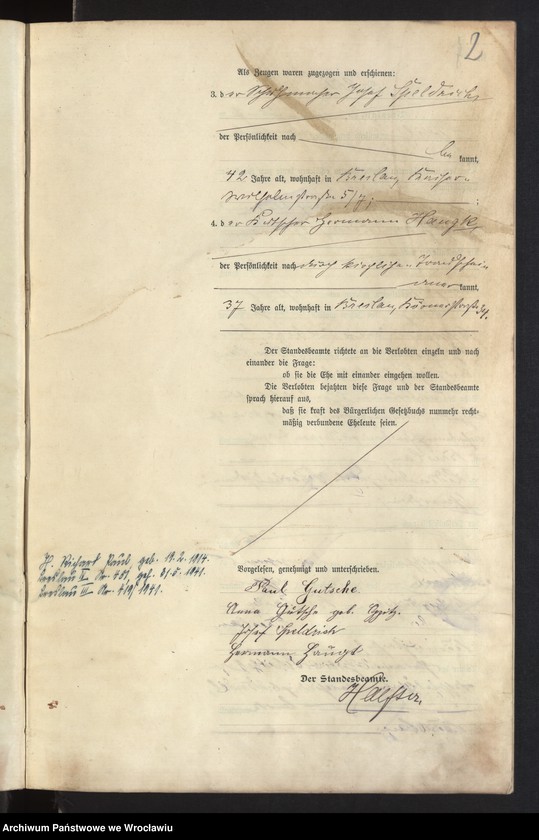 2
Als Zeugen waren zugezogen und erschienen:
3. d er Schuhmacher Josef Speldrich
der Persönlichkeit nach be kannt,
42 Jahre alt, wohnhaft in Breslau, Kaiser-
Wilhelmstraße 5/7; ;
4. d er Kutscher Hermann Haugk
der Persönlichkeit nach durch
aner kannt,
37 Jahre alt, wohnhaft in Breslau,
Der Standesbeamte richtete an die Verlobten einzeln und nach
einander die Frage:
ob sie die Ehe mit einander eingehen wollen.
Die Verlobten bejahten diese Frage und der Standesbeamte
sprach hierauf aus,
daß sie kraft des Bürgerlichen Gesetzbuchs nunmehr recht-
mäßig verbundene Eheleute seien.
Richard Paul geb. 19.2.1914.
Breslau II Nr. 489, gest. 31.5.1941.
Breslau III Nr. 419/1941.
Vorgelesen, genehmigt und unterschrieben.
Paul Gutsche
Anna Gutsche geb.
Josef Speldrich
Hermann
Der Standesbeamte.
Archiwum Państwowe we Wrocławiu